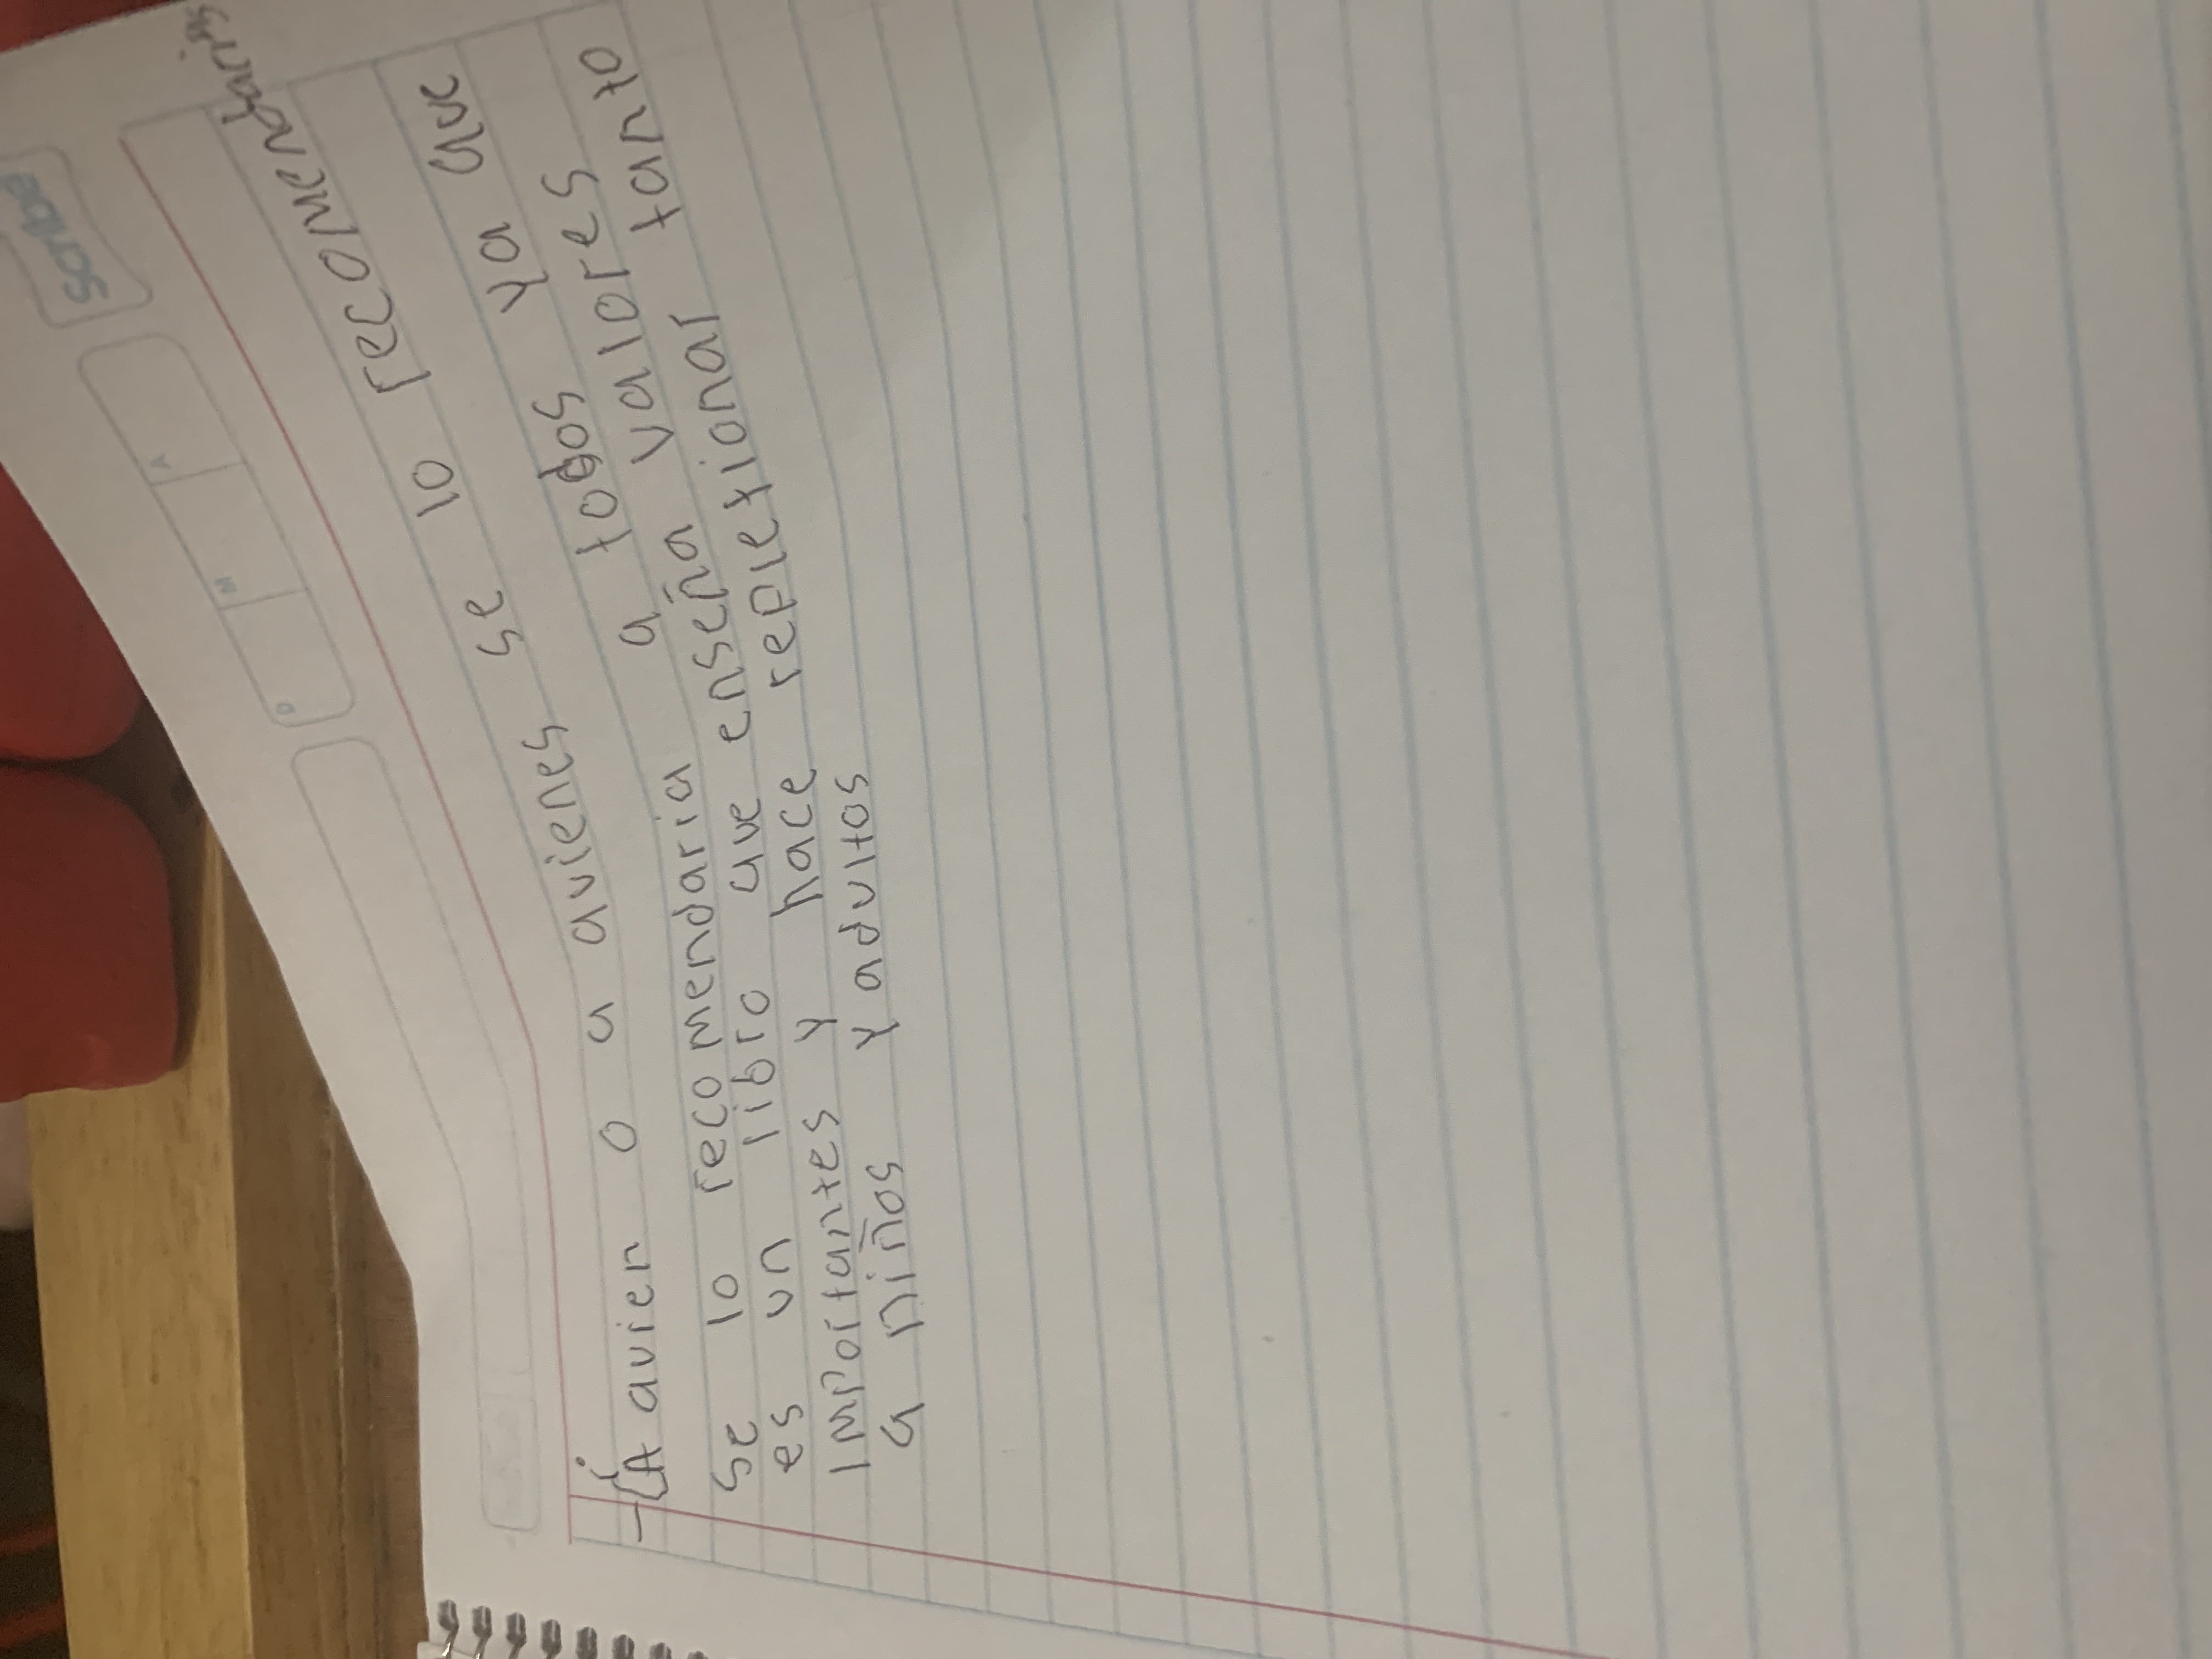 Scribe
D M A
-¿A quien o a quienes se lo recomendarias
Se lo recomendaria a todos ya que
es un libro que enseña valores
importantes y hace replextionar tanto
a niños y adultos